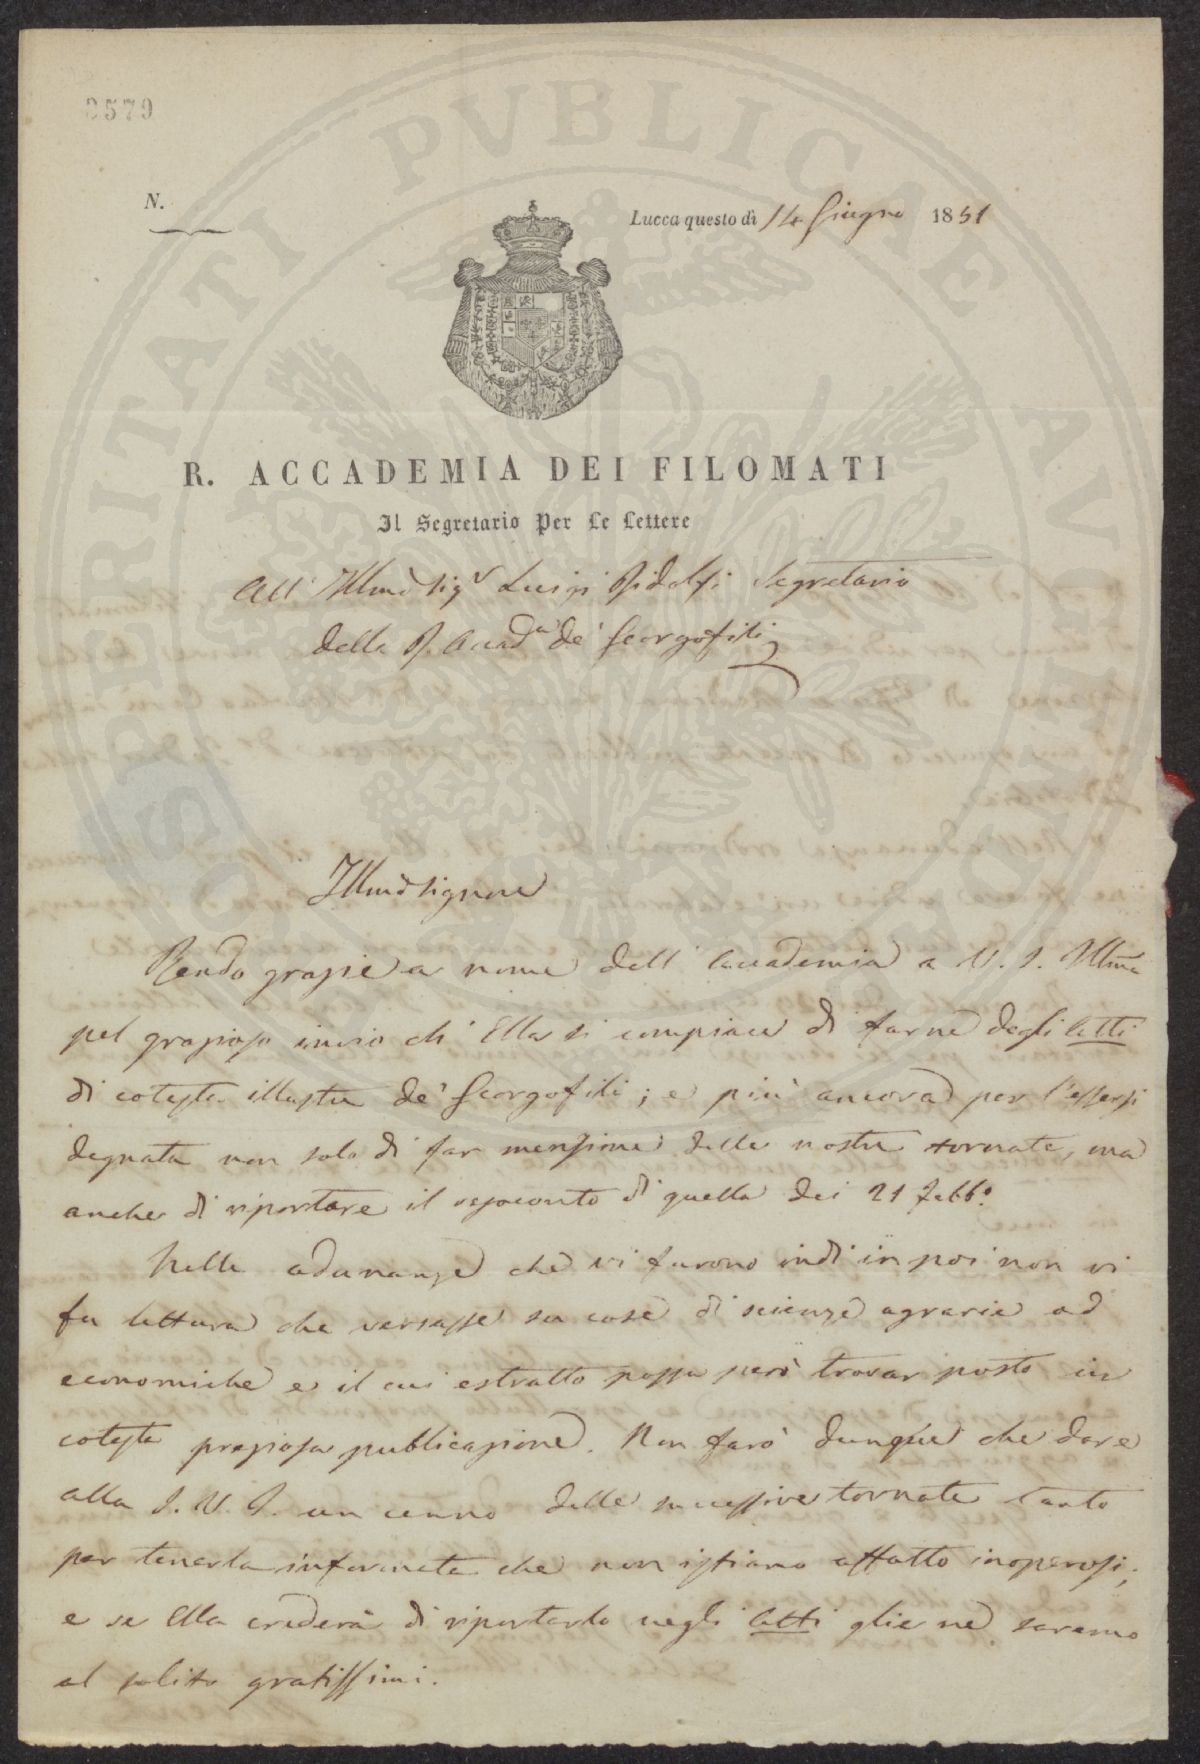 2579
N.
Lucca questo dì 14 Giugno 1851
R. ACCADEMIA DEI FILOMATI
Il Segretario Per Le Lettere
All' Illmo Sigr Luigi Ridolfi Segretario
della R. Accadia de' Georgofili
Illmo Signore
Rendo grazie a nome dell' Accademia a V. S. Illma
pel grazioso invio ch' Ella si compiace di farne degli Atti
di cotesta illustre de' Georgofili; e più ancora per l'essersi
degnata non solo di far menzione delle nostre tornate, ma
anche di riportare il resoconto di quella dei 21 Febbo.
Nelle adunanze che vi furono indi in poi non vi
fu lettura che versasse su cose di scienze agrarie ad
economiche e il cui estratto possa però trovar posto in
cotesta preziosa pubblicazione. Non farò dunque che dare
alla S. V. I. un cenno delle successive tornate tanto
per tenerla informata che non istiamo affatto inoperosi;
e se Ella crederà di riportarlo negli Atti gliene saremo
al solito gratissimi.
PROSPERITATI PVBLICAE AVGENDAE